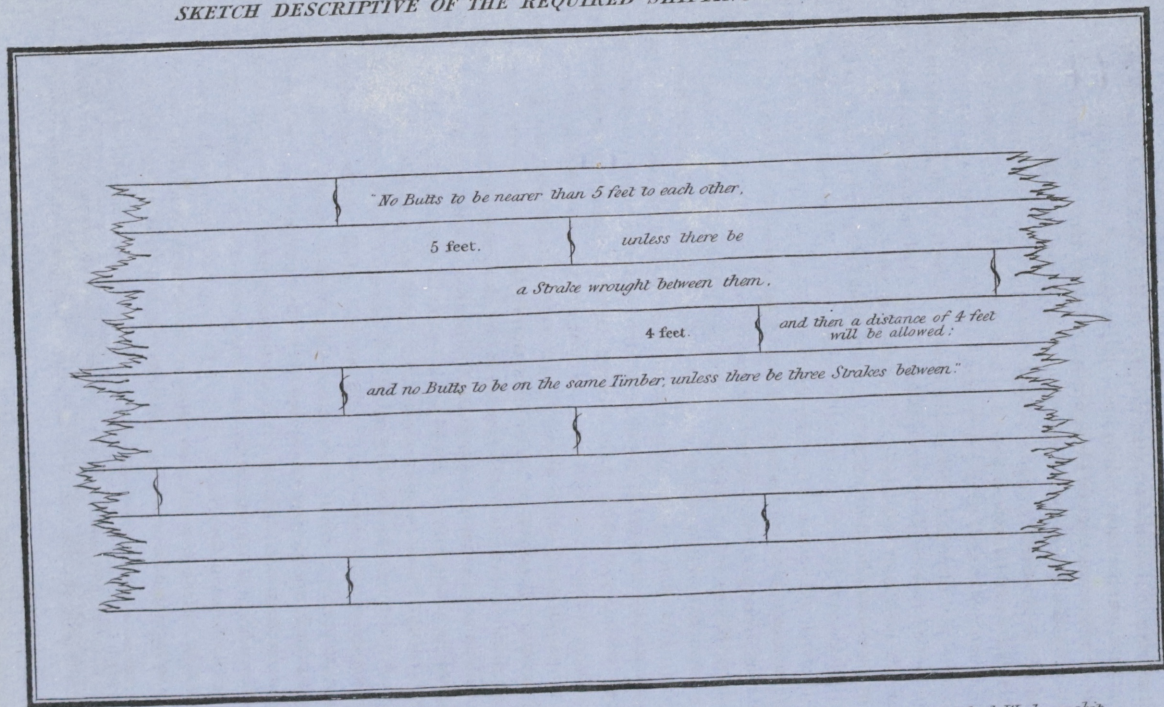 SKETCH DESCRIPTIVE OF THE REQUIRED
"No Butts to be nearer than 5 feet to each other,
5 feet. unless there be
a Strake wrought between them,
4 feet. and then a distance of 4 feet
will be allowed:
and no Butts to be on the same Timber, unless there be three Strakes between."